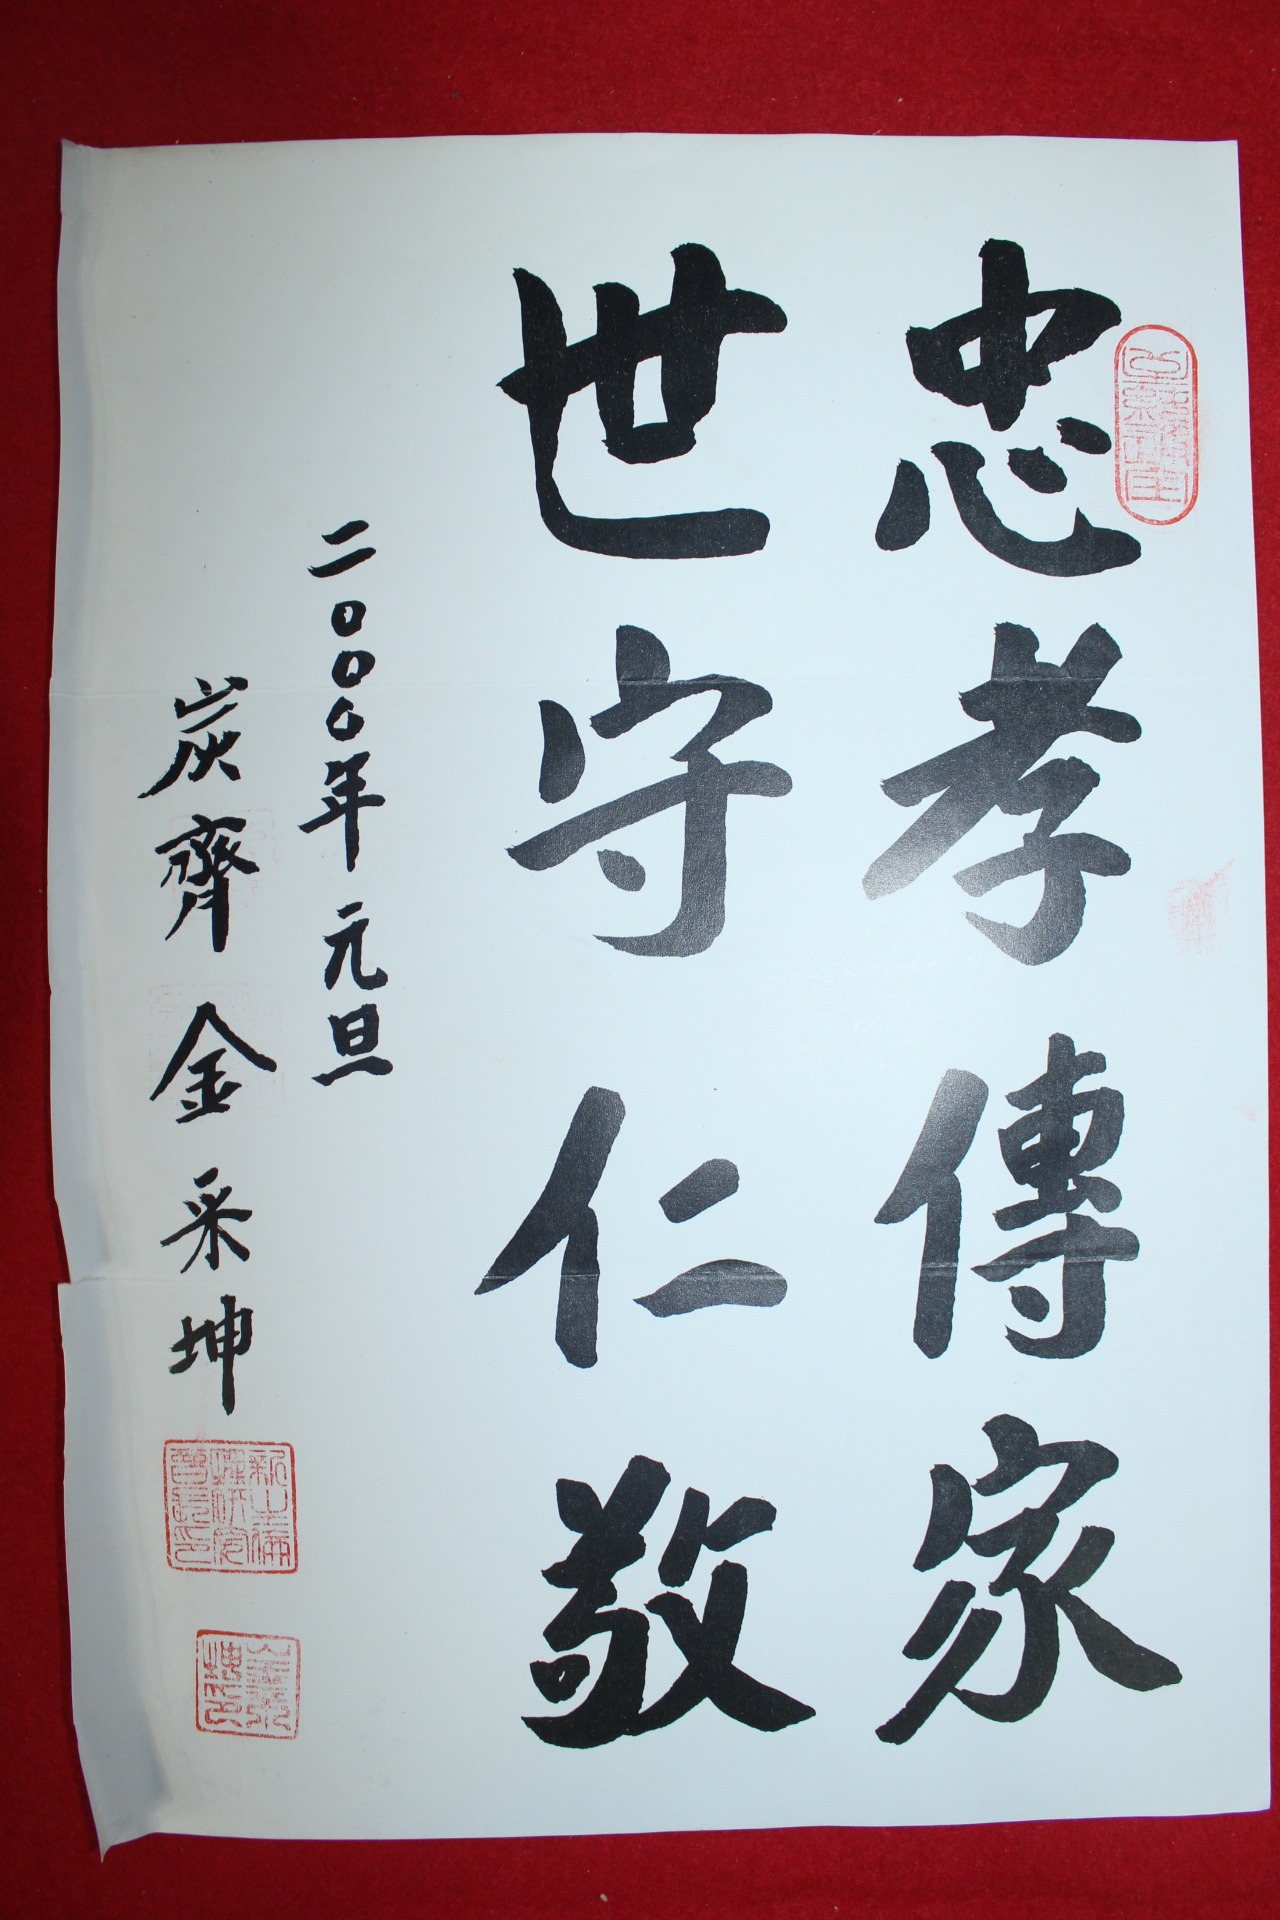 忠孝傳家
世守仁敬
二〇〇〇年 元旦
炭齊 金采坤